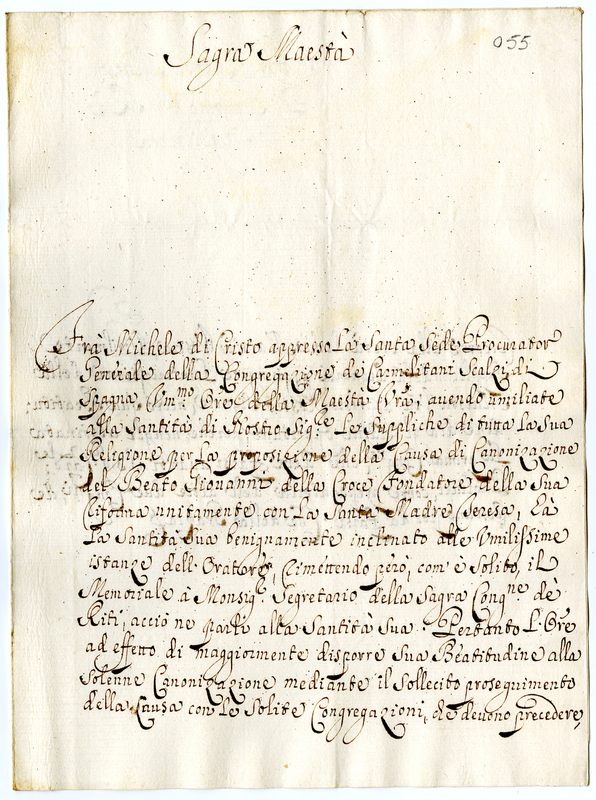 Sagra Maestà
055
Frà Michele di Cristo appresso La Santa Sede Procurator
Generale della Congregazione de Carmelitani Scalzi di
Spagna, Um.mo Ōre della Maestà Vrā, avendo umiliate
alla Santità di Nostro Sig.re Le Suppliche di tutta La Sua
Religione, per La proposizione della Causa di Canonizazione
del Beato Giovanni della Croce Fondatore della Sua
Riforma unitamente con La Santa Madre Teresa, hà
La Santità Sua benignamente inclinato alle Umilissime
istanze dell'Oratore, rimettendo però, com'è Solito, il
Memoriale à Monsig.r Segretario della Sagra Cong.ne dè
Riti, acciò ne parli alla Santità Sua. Pertanto L'Ōre
ad effetto di maggiormente disporre Sua Beatitudine alla
Solenne Canonizazione mediante il Sollecito proseguimento
della Causa con Le Solite Congregazioni, che devono precedere,